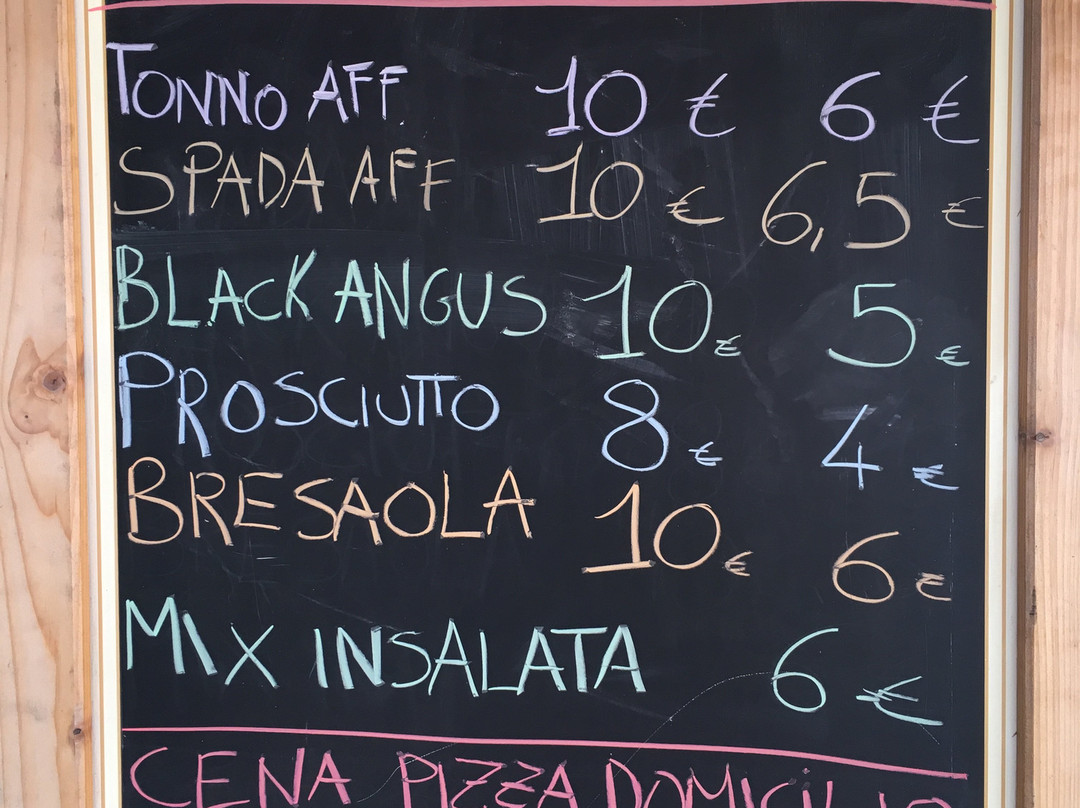 TONNO AFF. 10 € 6 €
SPADA AFF 10 € 6,5 €
BLACK ANGUS 10 € 5 €
PROSCIUTTO 8 € 4 €
BRESAOLA 10 € 6 €
MIX INSALATA 6 €
CENA PIZZA DOMICILIO